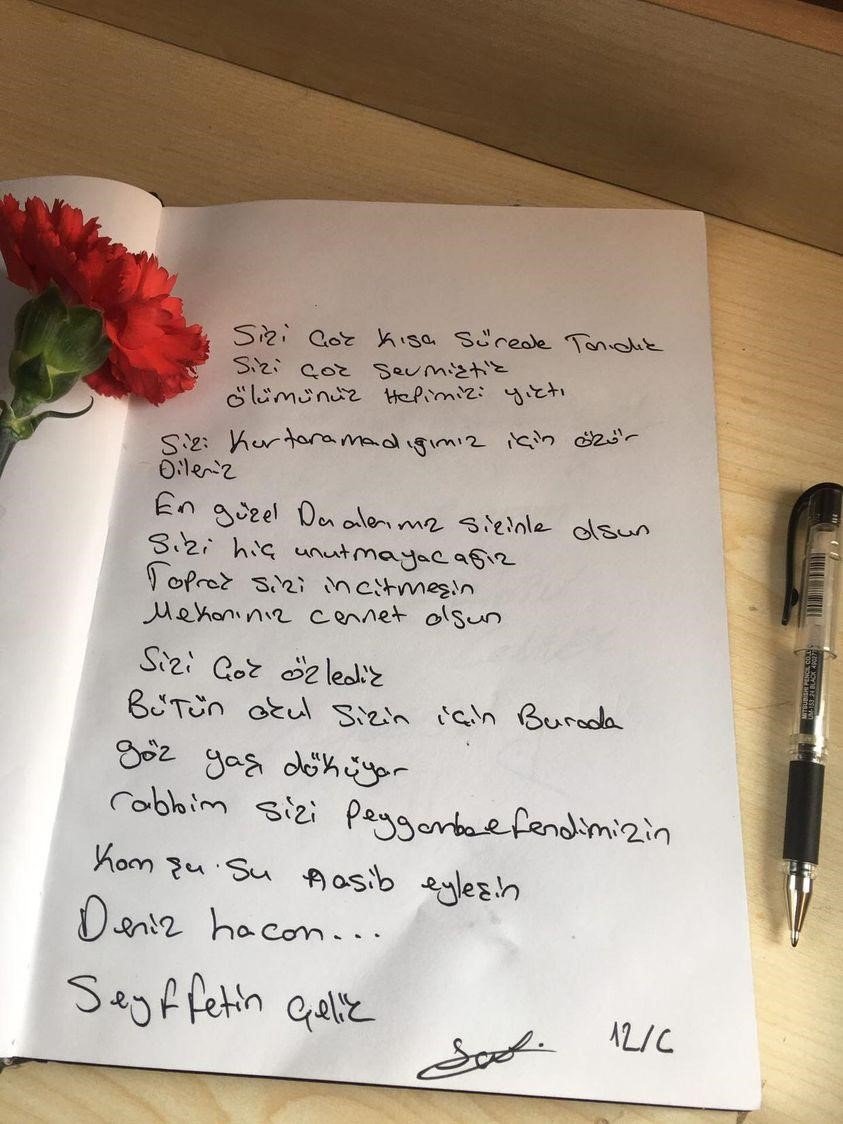 Sizi Çok Kısa Sürede Tanıdık
Sizi çok sevmiştik
Ölümünüz Hepimizi yıktı
Sizi Kurtaramadığımız için özür
Dileriz
En güzel Dualarımız sizinle olsun
Sizi hiç unutmayacağız
Toprak sizi incitmesin
Mekanınız cennet olsun
Sizi Çok özledik
BÜTÜN okul Sizin için Burada
göz yaşı döküyor
rabbim sizi Peygamber efendimizin
Komşu su nasib eylesin
Deniz hacon...
Seyffetin Çelik
12/C
MITSUBISHI PENCIL CO.,L